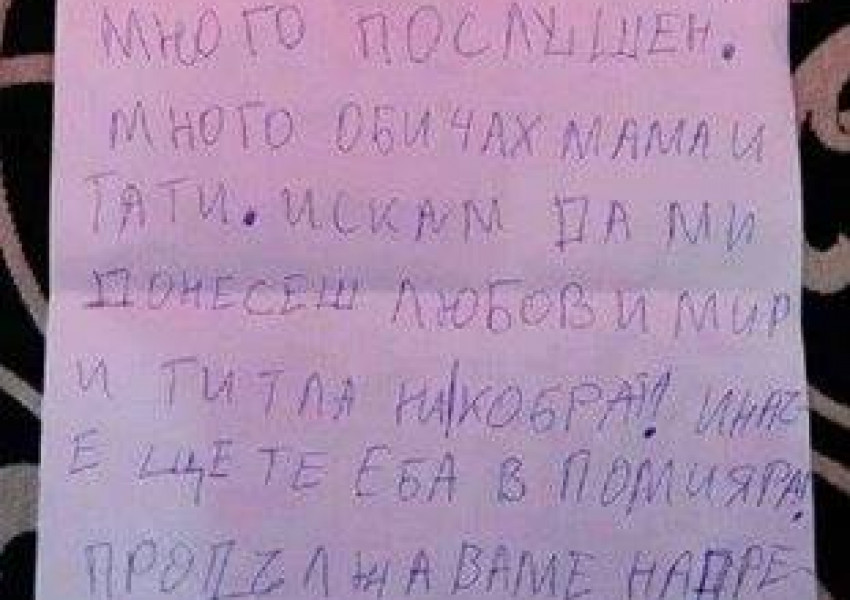 МНОГО ПОСЛУШЕН.
МНОГО ОБИЧАХ МАМА И
ТАТИ. ИСКАМ ДА МИ
ДОНЕСЕШ ЛЮБОВ И МИР
И ТИТЛА НА КОБРАТ! ИНАЧ-
Е ЩЕ ТЕ ЕБА В ПОМИЯРА!
ПРОДЪЛЖАВАМЕ НАПРЕ-